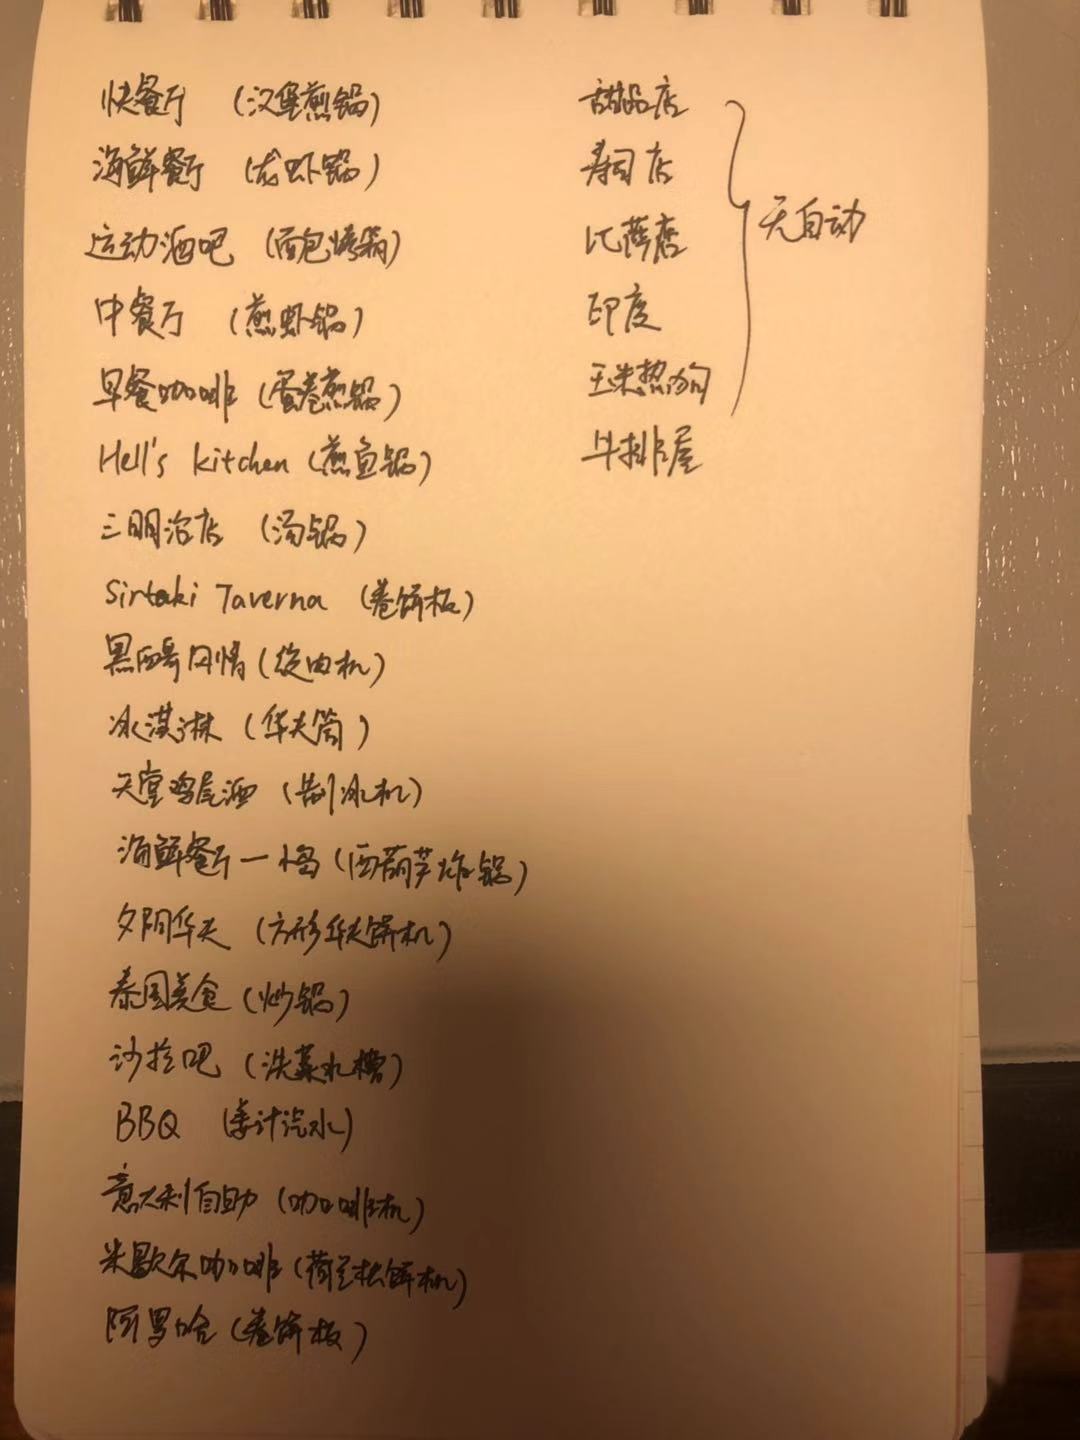 快餐厅 (汉堡煎锅)
海鲜餐厅 (龙虾锅)
运动酒吧 (面包烤箱)
中餐厅 (煎虾锅)
早餐咖啡 (蛋卷煎锅)
Hell's kitchen (煎鱼锅)
三明治店 (汤锅)
Sirtaki Taverna (卷饼板)
墨西哥风情 (绞肉机)
冰淇淋 (华夫筒)
天堂鸡尾酒 (制冰机)
海鲜餐厅一楼 (西葫芦炸锅)
夕阳华夫 (方形华夫饼机)
泰国美食 (炒锅)
沙拉吧 (洗菜水槽)
BBQ (姜汁汽水)
意大利自助 (咖啡机)
米歇尔咖啡 (荷兰松饼机)
阿罗哈 (卷饼板)
甜品店
寿司店
比萨店
印度
玉米热狗
牛排屋
无自动